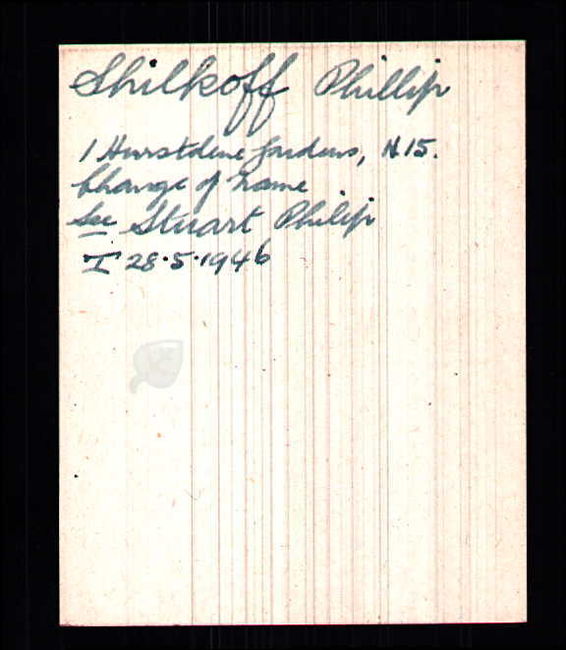 Shilkoff Phillip
1 Hurstdene Gardens, N.15.
Change of name
See Stuart Philip
I 28.5.1946